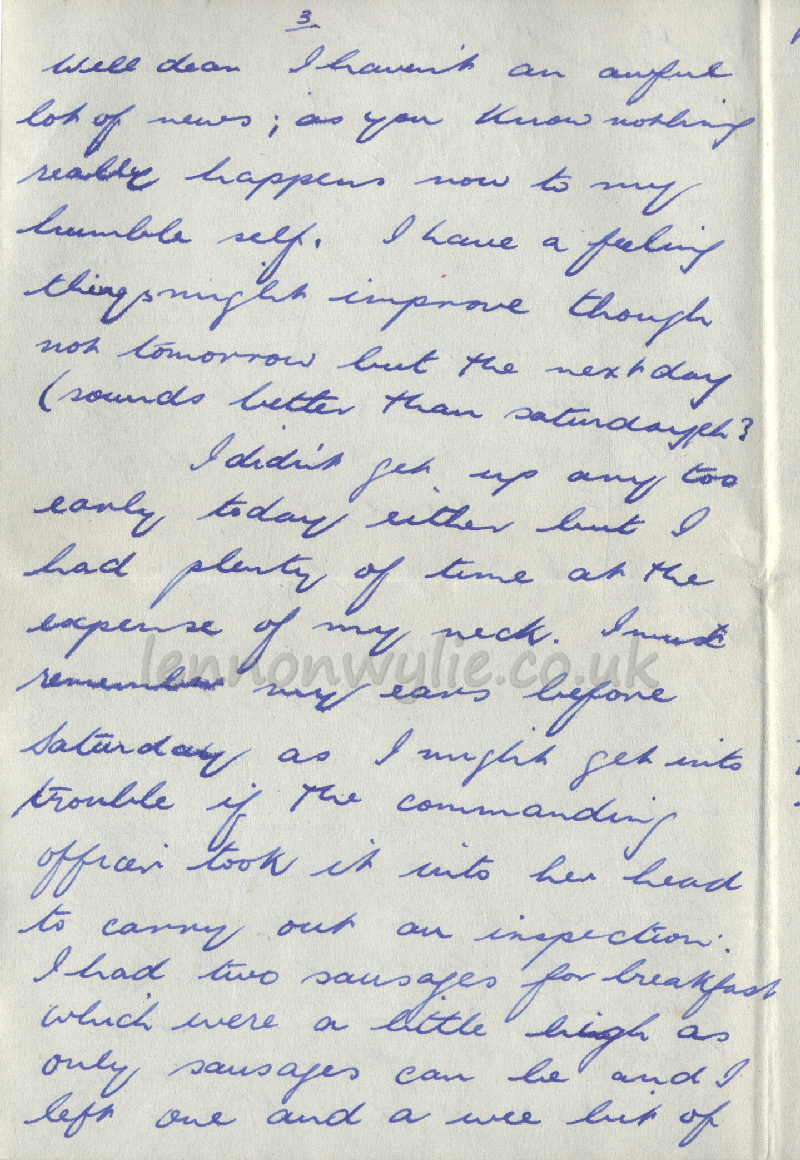 3
Well dear I haven't an awful
lot of news; as you know nothing
really happens now to my
humble self. I have a feeling
things might improve though
not tomorrow but the next day
(sounds better than saturday eh?
I didn't get up any too
early today either but I
had plenty of time at the
expense of my neck. I must
remember my ears before
Saturday as I might get into
trouble if the commanding
officer took it into her head
to carry out an inspection.
I had two sausages for breakfast
which were a little high as
only sausages can be and I
left one and a wee bit of
lennonwylie.co.uk